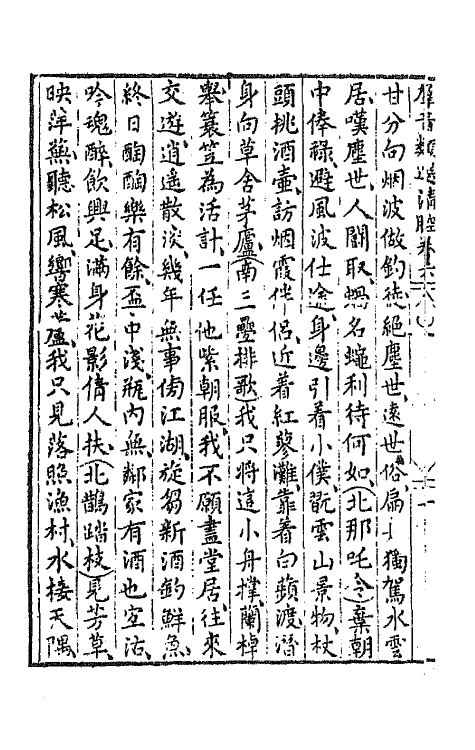 羣音類選清腔卷六
甘分向烟波做釣徒絕塵世遠世俗扁 獨駕水雲
居嘆塵世人閙取蝸名蠅利待何如(北那吒令)棄朝
中俸祿避風波仕途身邊引着小僕翫雲山景物杖
頭挑酒壷訪烟霞伴侶近着紅蓼灘靠着白蘋渡潛
身向草舍茅廬(南三疊排歌)我只將這小舟撑蘭棹
舉簑笠為活計一任他紫朝服我不願畫堂居往來
交遊逍遥散淡幾年無事傍江湖旋篘新酒釣鮮魚
終日酕醄樂有餘盃中淺瓶内無鄰家有酒也宜沽
吟魂醉飲興足滿身花影倩人扶(北鵲踏枝)見芳草
映萍蕪聽松風響寒蘆我只見落照漁村水接天隅